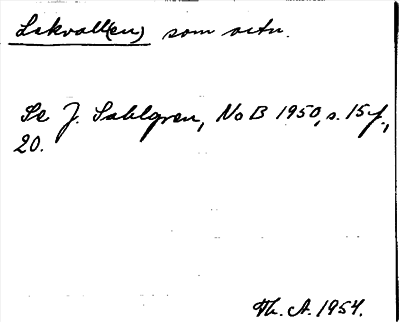 Lekvall(en) som ortn.
Se J. Sahlgren, NoB 1950, s. 15 f.,
20.
Th. A. 1954.